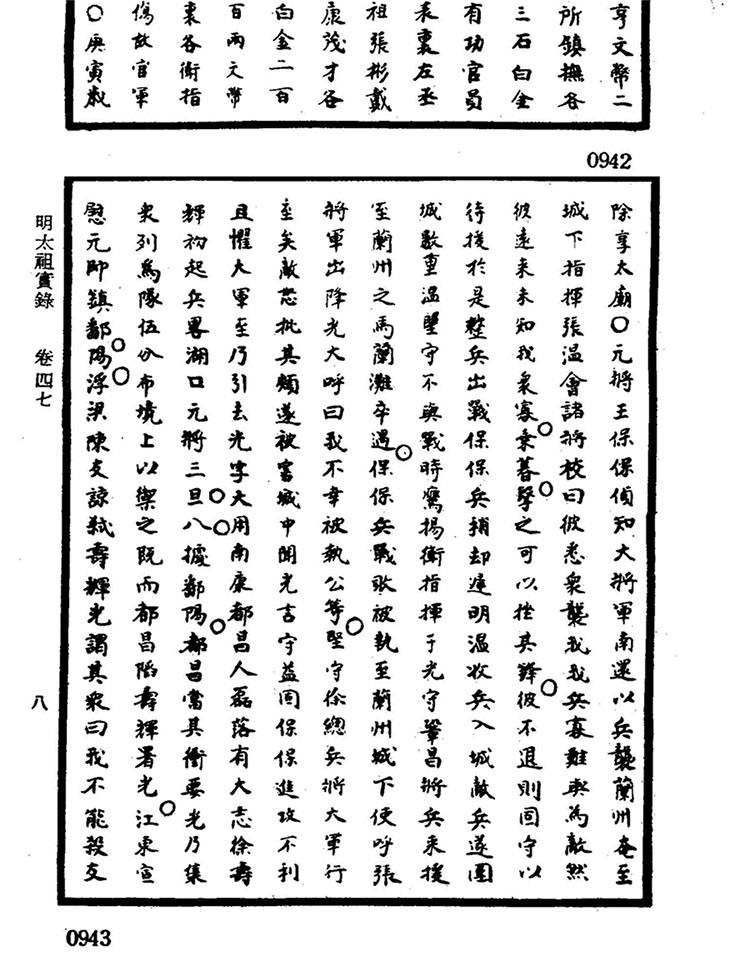 亨文幣二
所鎮撫各
三石白金
有功官員
表裏左丞
祖張彬戴
康茂才各
白金二百
百兩文幣
裏各衛指
傷故官軍
○庚寅歲
0942
除享太廟○元將王保保偵知大將軍南還以兵襲蘭州奄至
城下指揮張溫會諸將校曰彼悉衆襲我我兵寡難與為敵然
彼遠來未知我衆寡乘暮擊之可以挫其鋒彼不退則固守以
待援於是整兵出戰保保兵稍却達明溫收兵入城敵兵遂圍
城數重溫堅守不與戰時鷹揚衛指揮于光守鞏昌將兵來援
至蘭州之馬蘭灘卒遇保保兵戰敗被執至蘭州城下使呼張
將軍出降光大呼曰我不幸被執公等堅守徐總兵將大軍行
至矣敵怒批其頰遂被害城中聞光言守益固保保進攻不利
且懼大軍至乃引去光字大用南康都昌人磊落有大志徐壽
輝初起兵畧湖口元將三旦八據鄱陽都昌當其衝要光乃集
衆列為隊伍分布境上以禦之既而都昌陷壽輝署光江東宣
慰元帥鎮鄱陽浮梁陳友諒弒壽輝光謂其衆曰我不能殺友
明太祖實錄 卷四七 八
0943